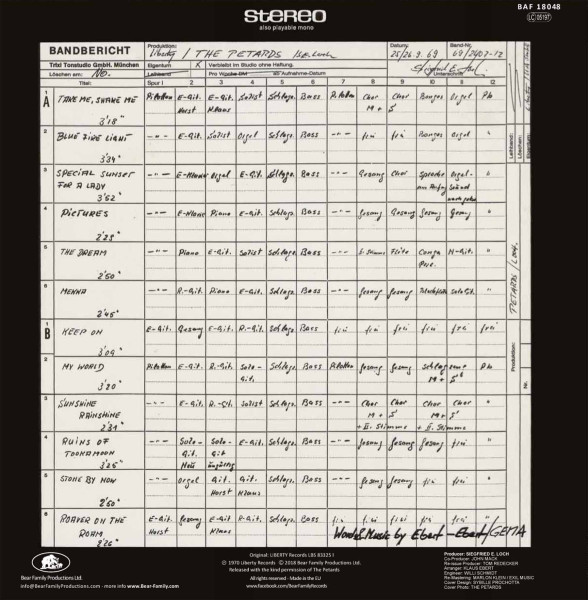 stereo
also playable mono
BAF 18048
LC 05197
BANDBERICHT
Trixi Tonstudio GmbH. München
Löschen am: No.
Produktion:
Liberty / THE PETARDS
Datum:
25/26.9.69
Band-Nr.
Eigentum X Verbleibt im Studio ohne Haftung.
Leihband Pro Woche DM ab Aufnahme-Datum
Unterschrift
Titel: Spur 1 2 3 4 5 6 7 8 9 10 11 12
1 A TAKE ME, SHAKE ME E-Git. E-Git. Solist Schlagz. Bass Chor Chor Bongos Orgel
Horst Klaus M +
3'18"
2 BLUE FIRE LIGHT -"- E-Git. Solist Orgel Schlagz. Bass -"- frei frei Bongos Orgel "
3'34"
3 SPECIAL SUNSET -"- Orgel E-Git. Schlagz. Bass -"- Gesang Chor Sprache Orgel-
FOR A LADY am Anfang Sound
3'52"
4 PICTURES -"- Piano E-Git. Schlagz. Bass -"- Gesang Gesang Gesang "
2'23"
5 THE DREAM -"- Piano E-Git. Solist Schlagz. Bass -"- Flöte Conga "
2'50"
6 MENHA -"- R.-Git. Piano E-Git. Schlagz. Bass -"- Gesang Gesang "
2'45"
1 B KEEP ON E-Git. Gesang E-Git. R.-Git. Schlagz. Bass frei frei frei frei frei frei
3'09"
2 MY WORLD E-Git. R.-Git. Solo- Schlagz. Bass Gesang Gesang
Git.
3'20"
3 SUNSHINE -"- E-Git. R.-Git. Solist Schlagz. Bass -"- Chor Chor Chor Chor "
RAINSHINE + II. Stimme + II. Stimme
2'31"
4 RUINS OF -"- Solo- Solo- E-Git. Schlagz. Bass -"- Gesang Gesang Gesang frei "
TOOKAMOON Git. Git
3'25" Neu ungültig
5 STONE BY NOW -"- Orgel Git. Git. Schlagz. Bass -"- Gesang Gesang frei frei "
Horst Klaus
2'50"
6 ROAVER ON THE E-Git. Gesang E-Git R-Git. Schlagz. Bass frei frei frei frei frei "
ROAM Horst Klaus
2'26"
Words & Music by Ebert-Ebert/GEMA
Leihband:
Löschen:
Eigentum:
PETARDS /
Produktion:
Nr.
Bear Family Productions Ltd.
Bear Family Productions Ltd.
info@BearFamilyProductions.com - more info www.Bear-Family.com
Original: LIBERTY Records LBS 83325 I
℗ 1970 Liberty Records © 2018 Bear Family Productions Ltd.
Released with the kind permission of The Petards
All rights reserved - Made in the EU
www.facebook.com/BearFamilyProducts
Producer: SIEGFRIED E. LOCH
Co-Producer: JOHN MACK
Re-issue Producer: TOM REDECKER
Arranger: KLAUS EBERT
Engineer: WILLI SCHMIDT
Re-Mastering: MARLON KLEIN / EXIL MUSIC
Cover Design: SYBILLE PROCHOTTA
Cover Photo: THE PETARDS